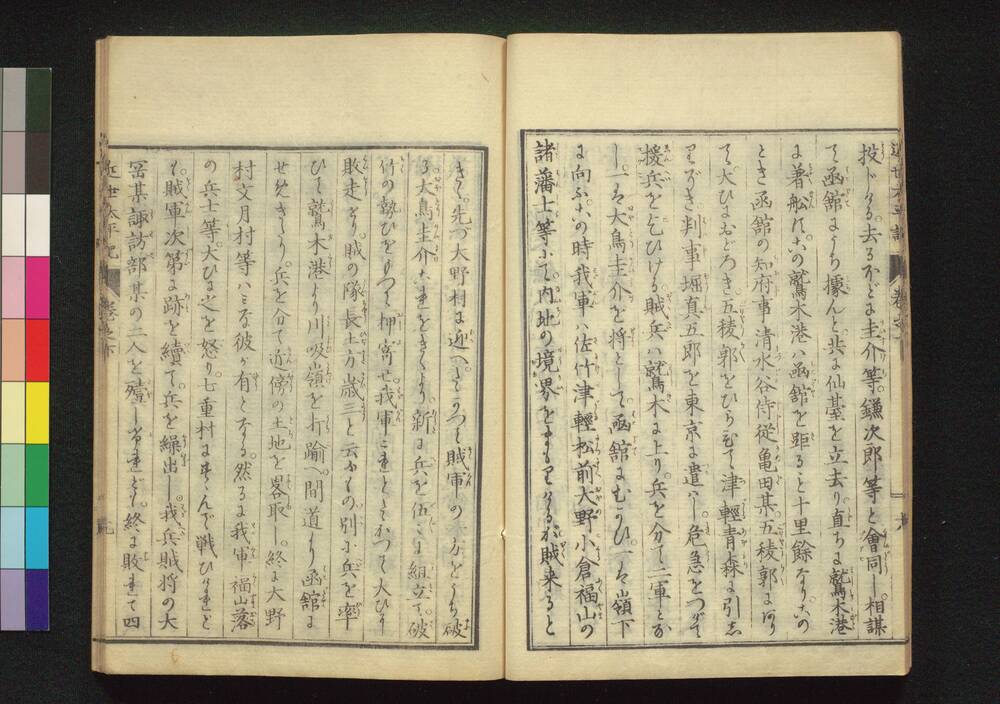 投ドける去るほどに圭介等鎌次郎等と會同し相謀
て函館により據んと共に仙臺を立去り直ちに鷲木港
に着舩す此鷲木港ハ函舘を距ること十里餘なり此
とき函舘の知府事清水谷侍従亀田某五稜郭にあり
て大ひにおどろき五稜郭をひらひて津輕青森に引し
りぞき判事堀真五郎を東京に遣ハし危急をつげて
援兵を乞ひける賊兵ハ鷲木に上り兵を分て二軍とな
し一は大鳥圭介を将として函舘にむかひ一は嶺下
に向ふ此時我軍ハ佐竹津輕松前大野小倉福山の
諸藩士等にて内地の境界をまもりけるが賊来ると
きて先づ大野村に迎へしかつて賊軍の方をうち破
る大鳥圭介これをきくより新に兵を伍に組立て破
竹の勢ひをもつて押寄せ我軍これとたたかつて大ひに
敗走す賊の隊長土方歳三と云ふもの別に兵を率
ひて鷲木港より川吸嶺を打踰へ間道より函舘に
せめきたり兵を分て近傍の土地を畧取し終に大野
村文月村等ハミな彼が有となる然るに我軍福山落
の兵士等大ひに之を怒り七重村にすすんで戦ひけれど
も賊軍次第に跡を續て兵を繰出し我兵賊将の大
某諏訪部某の二人を殪しけれども終に敗れて四
近世太平記